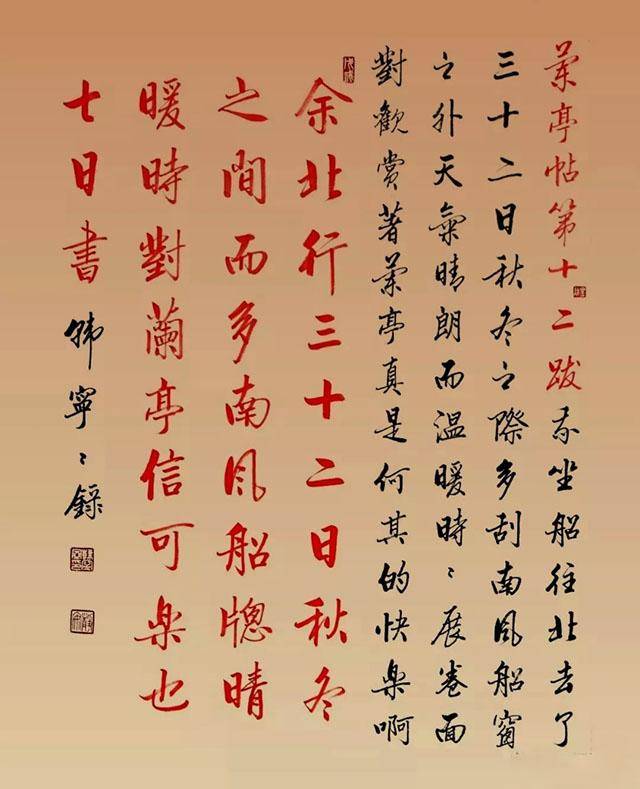 蘭亭帖第十二跋我坐船往北去了
三十二日秋冬之際多刮南風船窗
之外天氣晴朗而温暖時々展卷面
對觀賞著蘭亭真是何其的快樂啊
余北行三十二日秋冬
之間而多南風船牕晴
暖時對蘭亭信可樂也
七日書
韓寧々錄